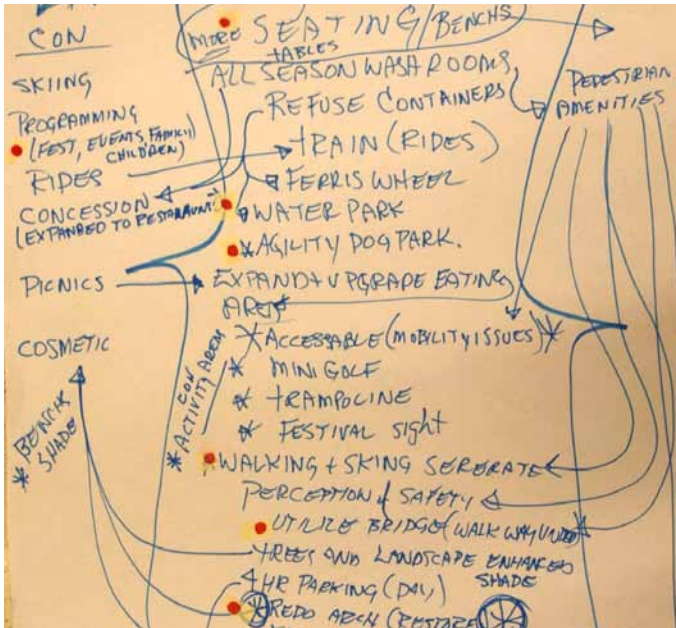 CON
SKIING
PROGRAMMING
(FEST, EVENTS, FAMILY,
CHILDREN)
RIDES
CONCESSION
(EXPANDED TO RESTARAUNT)
PICNICS
COSMETIC
* BENCH
SHADE
MORE SEATING/BENCHS
TABLES
ALL SEASON WASHROOMS
REFUSE CONTAINERS
TRAIN (RIDES)
FERRIS WHEEL
WATER PARK
* AGILITY DOG PARK.
EXPAND + UPGRADE EATING
AREA
* ACCESSABLE (MOBILITY ISSUES) *
* MINI GOLF
* TRAMPOLINE
* FESTIVAL SIGHT
* ACTIVITY AREA
WALKING + SKING SERERATE
PERCEPTION of SAFETY
UTILIZE BRIDGE (WALK WAY UNDER)
TREES AND LANDSCAPE ENHANCED
SHADE
4 HR PARKING (DAY)
* REDO ARCH (RESTORE
PEDESTRIAN
AMENITIES